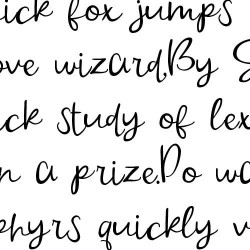 ick fox jumps
ove wizard,By S
ck study of lex
n a prize.Do wa
phyrs quickly v